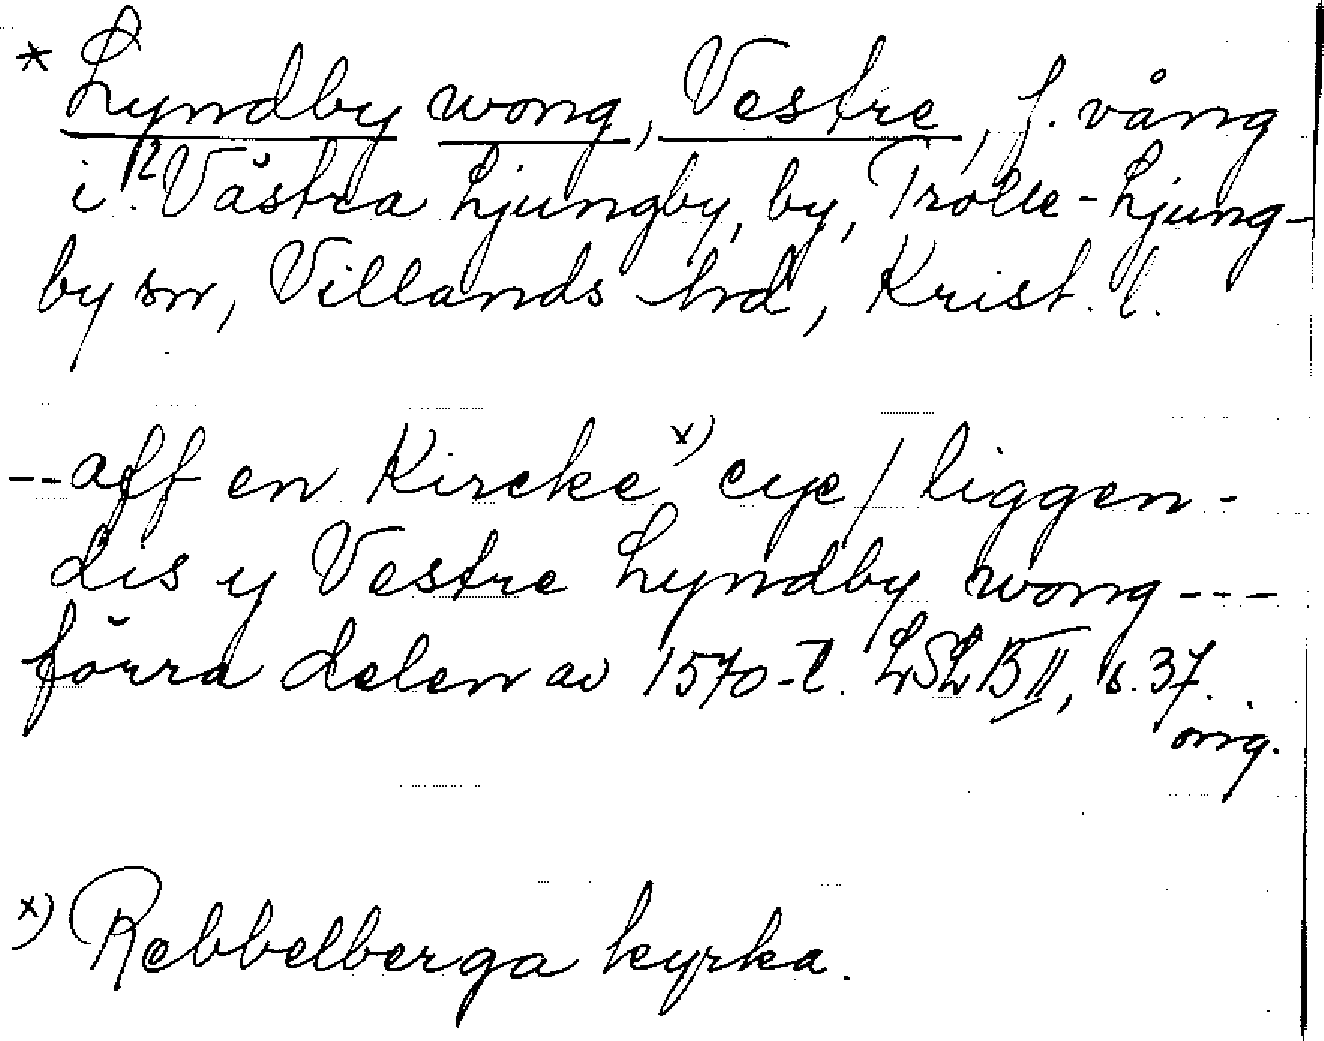 * Lyndby wong, Vestre, f. vång
i 12 Västra Ljungby, by, Trolle-Ljung-
by sn, Villands hd, Krist. l.
-- aff en Kircke x) eye / liggen-
dis y Vestre Lyndby wong ---
förra delen av 1570-t. LSLB II, s. 37.
orig.
x) Rebbelberga kyrka.